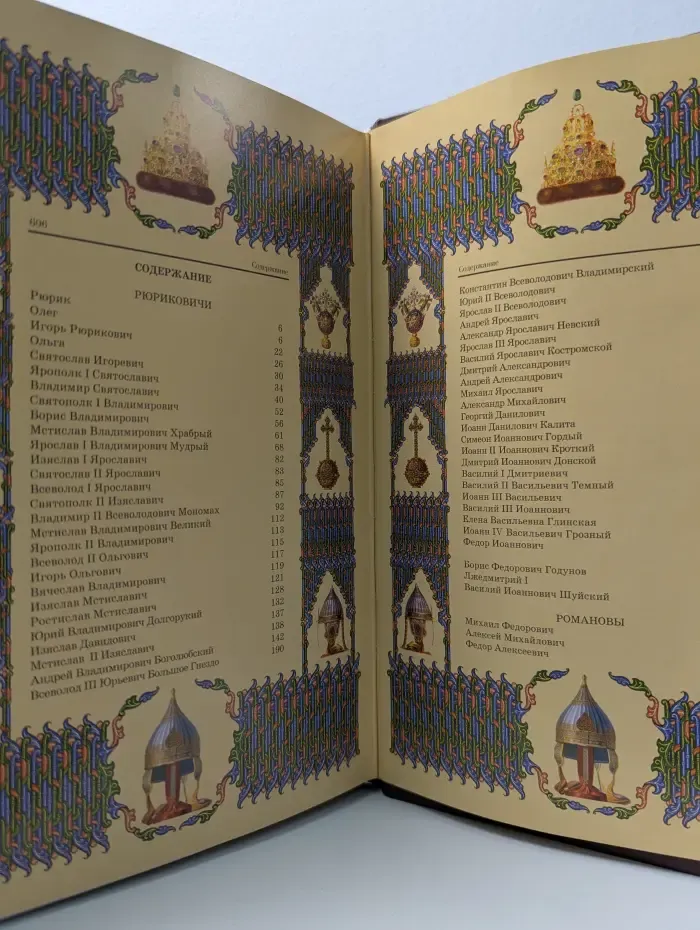 606
Содержание
СОДЕРЖАНИЕ
РЮРИКОВИЧИ
Рюрик 6
Олег 6
Игорь Рюрикович 22
Ольга 26
Святослав Игоревич 30
Ярополк I Святославич 34
Владимир Святославич 40
Святополк I Владимирович 52
Борис Владимирович 56
Мстислав Владимирович Храбрый 61
Ярослав I Владимирович Мудрый 68
Изяслав I Ярославич 82
Святослав II Ярославич 83
Всеволод I Ярославич 85
Святополк II Изяславич 87
Владимир II Всеволодович Мономах 92
Мстислав Владимирович Великий 112
Ярополк II Владимирович 113
Всеволод II Ольгович 115
Игорь Ольгович 117
Вячеслав Владимирович 119
Изяслав Мстиславич 121
Ростислав Мстиславич 128
Юрий Владимирович Долгорукий 132
Изяслав Данилович 137
Мстислав II Изяславич 138
Андрей Владимирович Боголюбский 142
Всеволод III Юрьевич Большое Гнездо 190
Содержание
Константин Всеволодович Владимирский
Юрий II Всеволодович
Ярослав II Всеволодович
Андрей Ярославич
Александр Ярославич Невский
Ярослав III Ярославич
Василий Ярославич Костромской
Дмитрий Александрович
Андрей Александрович
Михаил Ярославич
Александр Михайлович
Георгий Данилович
Иоанн Данилович Калита
Симеон Иоаннович Гордый
Иоанн II Иоаннович Кроткий
Дмитрий Иоаннович Донской
Василий I Дмитриевич
Василий II Васильевич Темный
Иоанн III Васильевич
Василий III Иоаннович
Елена Васильевна Глинская
Иоанн IV Васильевич Грозный
Федор Иоаннович
Борис Федорович Годунов
Лжедмитрий I
Василий Иоаннович Шуйский
РОМАНОВЫ
Михаил Федорович
Алексей Михайлович
Федор Алексеевич